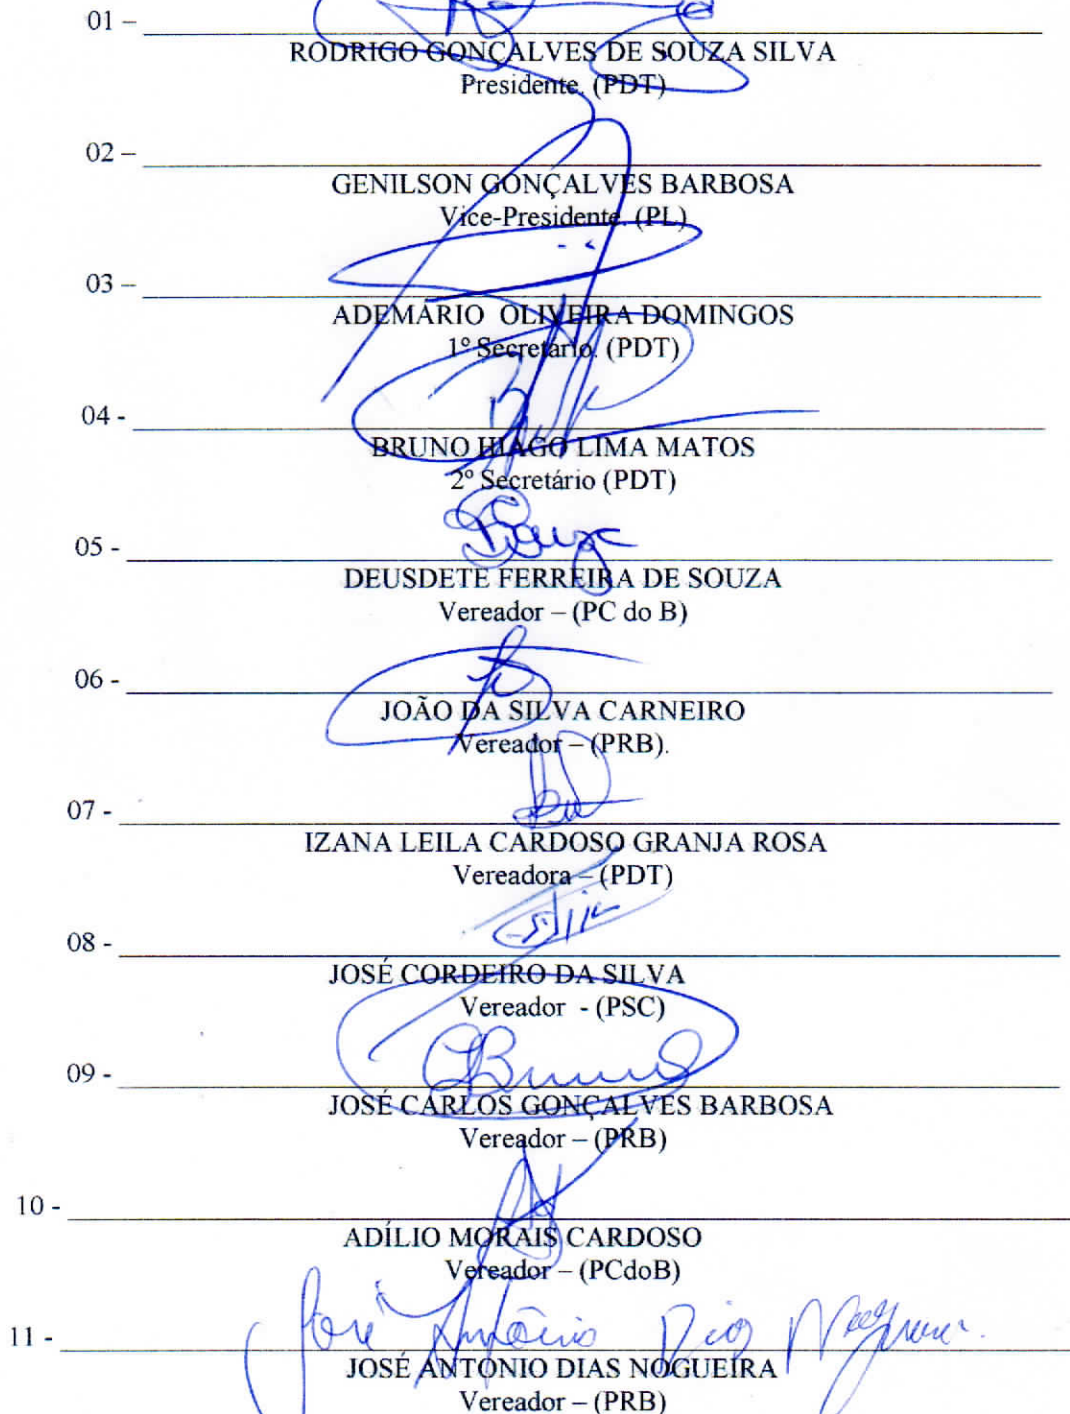 01 –
RODRIGO GONÇALVES DE SOUZA SILVA
Presidente. (PDT)
02 –
GENILSON GONÇALVES BARBOSA
Vice-Presidente. (PL)
03 –
ADEMÁRIO OLIVEIRA DOMINGOS
1º Secretário. (PDT)
04 -
BRUNO HIAGO LIMA MATOS
2º Secretário (PDT)
Souza
05 -
DEUSDETE FERREIRA DE SOUZA
Vereador – (PC do B)
06 -
JOÃO DA SILVA CARNEIRO
Vereador – (PRB).
07 -
IZANA LEILA CARDOSO GRANJA ROSA
Vereadora – (PDT)
08 -
JOSÉ CORDEIRO DA SILVA
Vereador - (PSC)
09 -
JOSÉ CARLOS GONÇALVES BARBOSA
Vereador – (PRB)
10 -
ADÍLIO MORAIS CARDOSO
Vereador – (PCdoB)
José Antônio Dias Nogueira
11 -
JOSÉ ANTÔNIO DIAS NOGUEIRA
Vereador – (PRB)